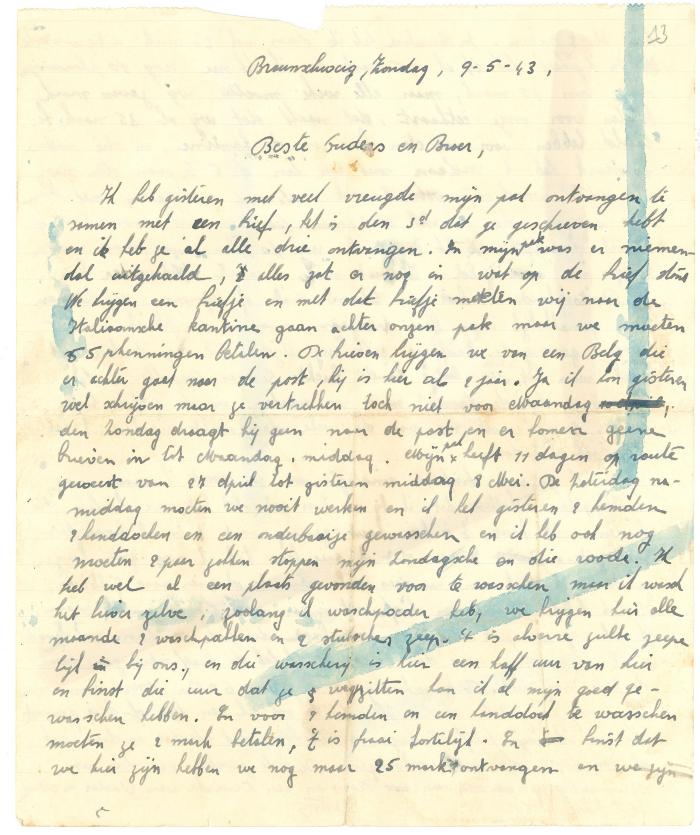 13
Braunschweig, Zondag, 9-5-43,
Beste Ouders en Broer,
Ik heb gisteren met veel vreugde mijn pak ontvangen te
samen met een brief, het is den 3d dat ge geschreven hebt
en ik heb ze al alle drie ontvangen. In mijn pak was er nieman-
dal uitgehaald, alles zat er nog in wat op de brief stond
We krijgen een briefje en met dat briefje moeten wij naar de
Italiaansche kantine gaan achter onzen pak maar we moeten
55 phenningen betalen. De brieven krijgen we van een Belg die
er achter gaat naar de post, hij is hier al 2 jaar. Ja ik kon gisteren
wel schrijven maar ze vertrekken toch niet voor Maandag
den Zondag draagt hij geen naar de post en er komen geene
brieven in tot Maandag middag. Mijn pak heeft 11 dagen op route
geweest van 27 April tot gisteren middag 8 Mei. De Zaterdag na-
middag moeten we nooit werken en ik heb gisteren 2 hemden
2 handdoeken en een onderbaaitje gewasschen en ik heb ook nog
moeten 2 paar zokken stoppen mijn Zondagsche en die roode. Ik
heb wel al een plaats gevonden voor te wasschen maar ik wasch
het liever zelve, zoolang ik waschpoeder heb, we krijgen hier alle
maande 2 waschpakken en 2 stukschen zeep. 't is alsarre zulke zeepe
lijk bij ons, en die wasscherij is hier een half uur van hier
en binst die uur dat ge wegzitten kan ik al mijn goed ge-
wasschen hebben. En voor 2 hemden en een handdoek te wasschen
moeten ze 2 mark betalen, 't is fraai kortelijk. En binst dat
we hier zijn hebben we nog maar 25 mark ontvangen en we zijn